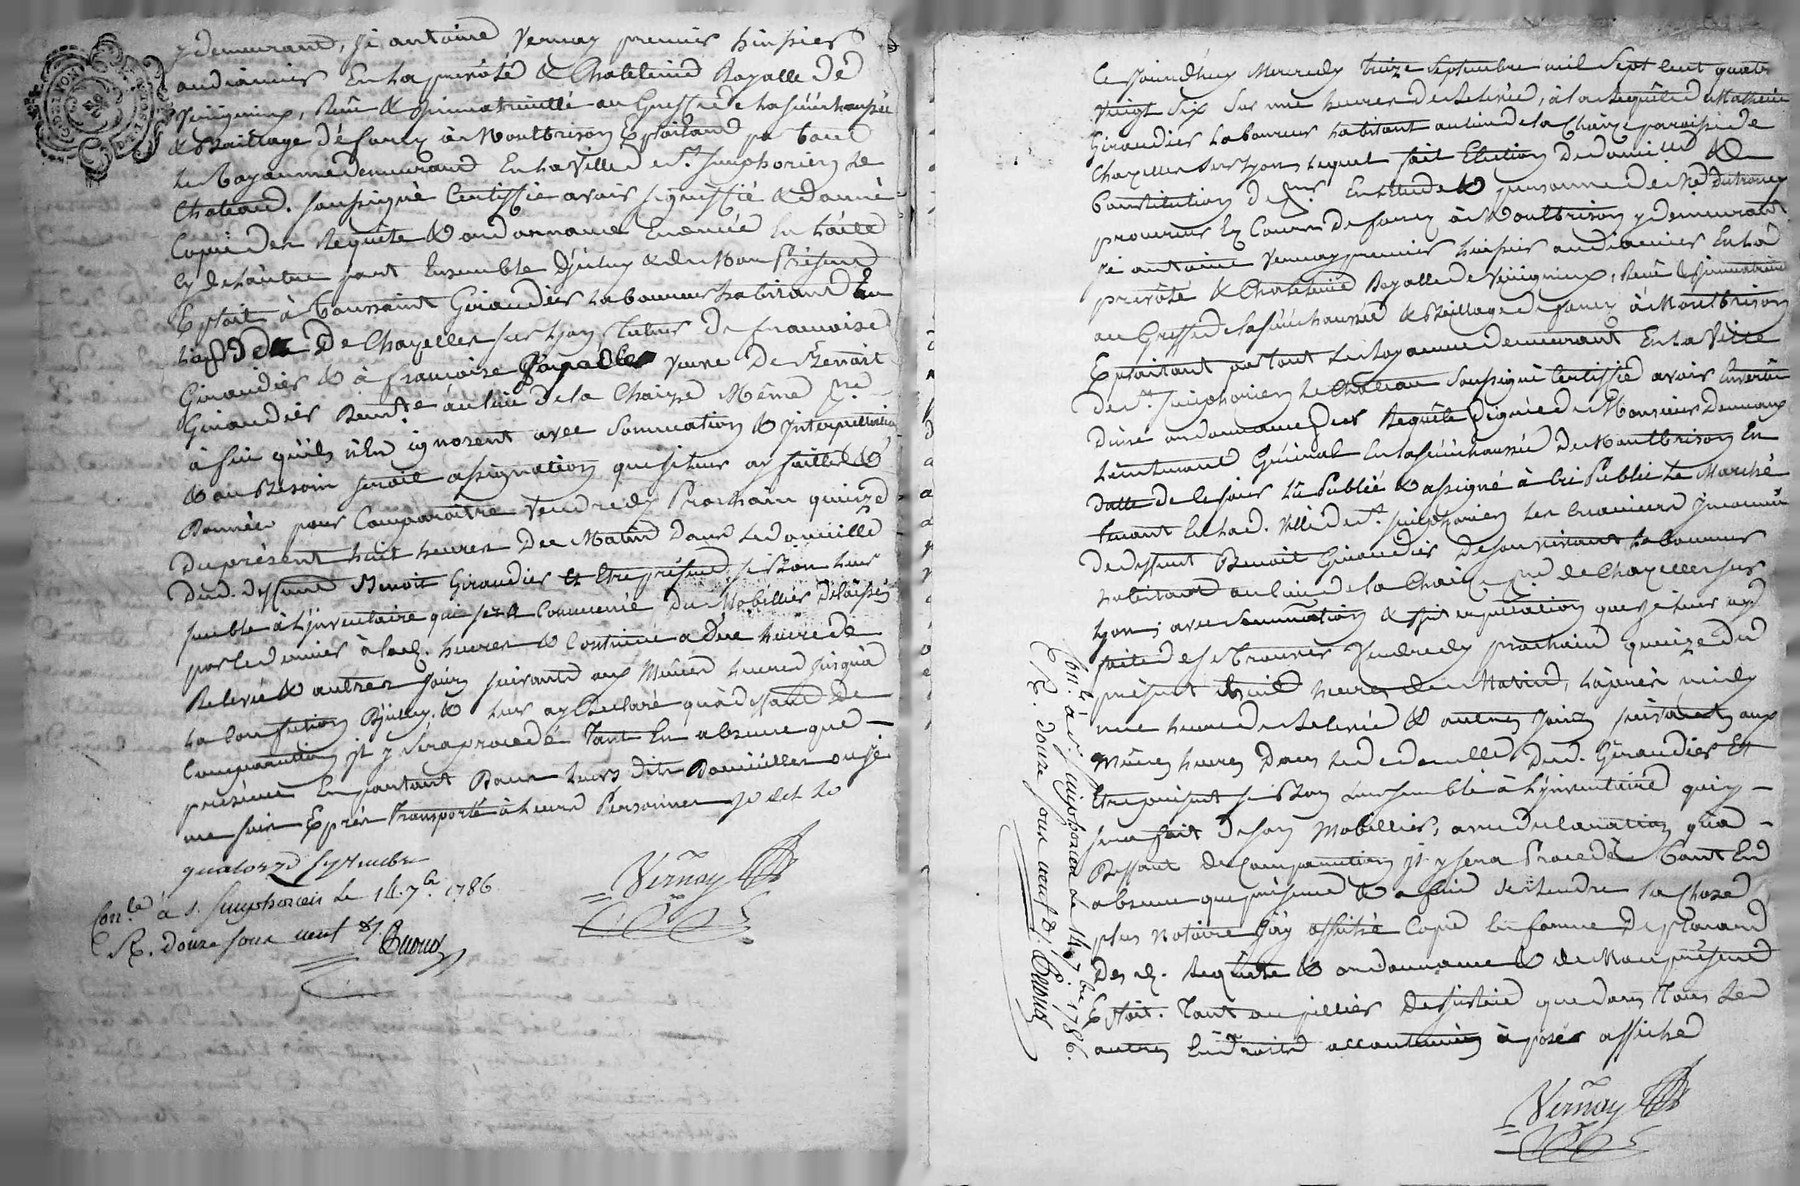 y demeurant, je antoine Vernay premier huissier
audiancier En la prevôté & Chatelenie Royalle de
Reçû & immatriculé au Greffe de la sénéchaussée
& Bailliage de forez à Montbrison Exploitand par tout
le Royaume demeurand En la Ville de St. Simphorien le
Chateaud. soussigné Certiffie avoir signiffié & donné
Copie des Requête & ordonnance Enoncée En tête
Exploit à Toussaint Giraudier laboureur habitand En
de Chazelles sur Lyon, tuteur de francoise
Giraudier & à francoise veuve de Benoit
Giraudier Demte au lieu de la Chaize Même pse
à fin qu'ils n'En ignorent avec Sommation & Interpellation
& au Besoin assignation que je leur ay faitte &
Donnée pour Comparoître Vendredy Prochain quinze
Du présent huit heures Du Matin Dans le domicille
Dud. deffunt Benoit Giraudier Et Etre présend si Bon leur
semble à L'jnventaire qui sera Commencé Du Mobillier Délaissé
par le dernier à lad. heure & Continué a Une heure de
Relevée & autres jours suivants aux Mêmes heures jusqu'à
La Confection D'jcelluy, & leur ay Declaré qu'à deffaut de
Comparution jl y sera procedé Tant En absence que
présence En parlant Dans leurs dits Domicilles ou je
me suis Exprès Transporté à leurs Personnes le dit jour
quatorze septembre
Vernay
Con.lé à s. Simphorien le 14. 7bre 1786.
R. douze sous neuf d.
Ce jourd'huy Mercredy treize septembre mil sept cent quatre
vingt six sur une heure de Relevée, à la Requête de Mathieu
Giraudier laboureur habitant au lieu de la Chaize paroisse de
Chazelles sur Lyon lequel fait Election De domicille &
Constitution de pr. En l'Etude & personne de Me Dutroncy
procureur Ez Cours de forez à Montbrison y demeurant
je antoine Vernay premier huissier audiancier En la
prevôté & Chatelenie Royalle de Reçû & jmmatriculé
au Greffe de la sénéchaussée & Bailliage de forez à Montbrison
Exploitant par tout le Royaume demeurant En la Ville
de St. Simphorien le Château soussigné Certiffie avoir En vertu
D'une ordonnance sur Requête signée de Monsieur
Lieutenant Général En la sénéchaussée De Montbrison En
datte de ce jour Lû Publié & assigné à Cri Public Le Marché
tenant En lad. Ville de St. Simphorien les Créanciers Jnconnus
De deffunt Benoit Giraudier De son vivant laboureur
habitant au lieu de la Chaize pse de Chazelles sur
Lyon, avec Sommation & que je leur ay
faite de se trouver Vendredy prochain quinze du
présent huit heures du Matin,
une heure de Relevée & autres jours suivants aux
Mêmes heures Dans le domicille Dud. Giraudier Et
Etre présent si Bon leur semble à L'jnventaire qui y
sera fait de son Mobillier, avec declaration qu'à
Deffaut de Comparution jl y sera Procedé Tant En
absence que présence & a fin de Rendre la chose
plus notoire j'ay affiché Copie En forme de placard
Des d. Requête & ordonnance & de Mon présend
Exploit. Tant au pillier De justice que dans Tous les
autres Endroits accoutumés à poser affiche
Vernay
Con.lé à St. Simphorien le 14. 7bre 1786.
R. douze sous neuf d.